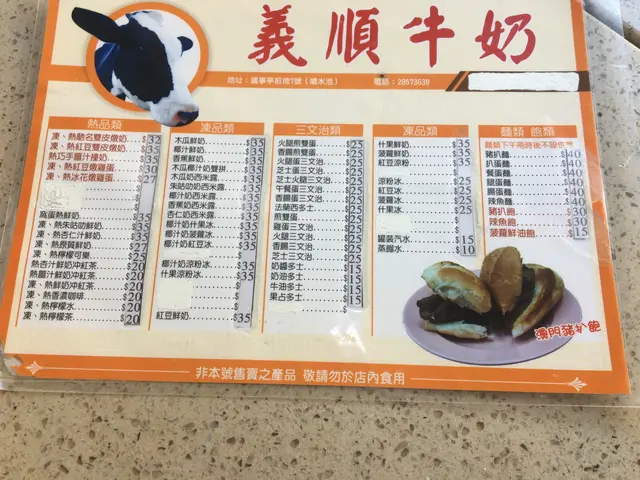 義順牛奶
地址：議事亭前地7號（噴水池） 電話：28573638
熱品類
凍、熱馳名雙皮燉奶 $32
凍、熱紅豆雙皮燉奶 $35
熱巧手薑汁撞奶 $35
凍、熱紅豆燉雞蛋 $30
凍、熱冰花燉雞蛋 $27
窩蛋熱鮮奶 $35
凍、熱朱咕叻鮮奶 $35
凍、熱杏仁汁鮮奶 $35
凍、熱原質鮮奶 $27
凍、熱檸檬可樂 $25
熱杏汁鮮奶冲紅茶 $20
熱薑汁鮮奶冲紅茶 $20
凍、熱鮮奶冲紅茶 $20
凍、熱香濃咖啡 $20
凍、熱檸檬水 $20
凍、熱檸檬茶 $20
凍品類
木瓜鮮奶 $35
椰汁鮮奶 $35
香蕉鮮奶 $35
木瓜椰汁鮮奶雙拼 $35
木瓜奶西米露 $35
朱咕叻奶西米露 $35
椰汁奶西米露 $35
香蕉奶西米露 $35
杏仁奶西米露 $35
椰汁奶什果冰 $35
椰汁奶菠蘿冰 $35
椰汁奶紅豆冰 $35
椰汁奶涼粉冰 $35
什果涼粉冰 $35
紅豆鮮奶 $35
三文治類
火腿煎雙蛋 $25
香腸煎雙蛋 $25
火腿蛋三文治 $25
芝士蛋三文治 $25
芝士火腿三文治 $25
午餐蛋三文治 $25
香腸蛋三文治 $25
法蘭西多士 $25
煎雙蛋 $25
雞蛋三文治 $25
火腿三文治 $25
香腸三文治 $25
芝士三文治 $25
奶醬多士 $15
奶油多士 $15
牛油多士 $15
果占多士 $15
凍品類
什果鮮奶 $35
菠蘿鮮奶 $35
紅豆涼粉 $35
涼粉冰 $25
紅豆冰 $25
菠蘿冰 $25
什果冰 $25
罐裝汽水 $15
蒸餾水 $10
麵類 飽類
麵類下午兩時後不設供應
豬扒麵 $40
扒蛋麵 $40
餐蛋麵 $40
腿蛋麵 $40
腸蛋麵 $40
辣魚麵 $40
豬扒飽 $30
辣魚飽 $30
菠蘿鮮油飽 $15
澳門豬扒飽
非本號售賣之產品 敬請勿於店內食用